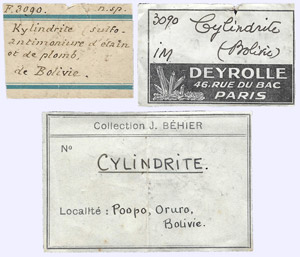 F. 3090. n. sp.
Kylindrite (sulfo-
antimoniure d'étain
et de plomb,
de Bolivie.
3090 Cylindrite
1M (Bolivie)
DEYROLLE
46, RUE DU BAC
PARIS
Collection J. BÉHIER
N°
CYLINDRITE.
Localité : Poopo, Oruro,
Bolivie.